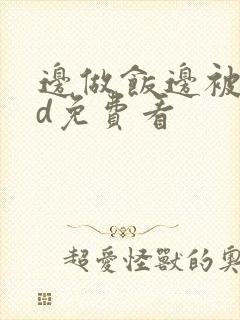 邊做飯邊被
d免費看
超愛怪獸的奧